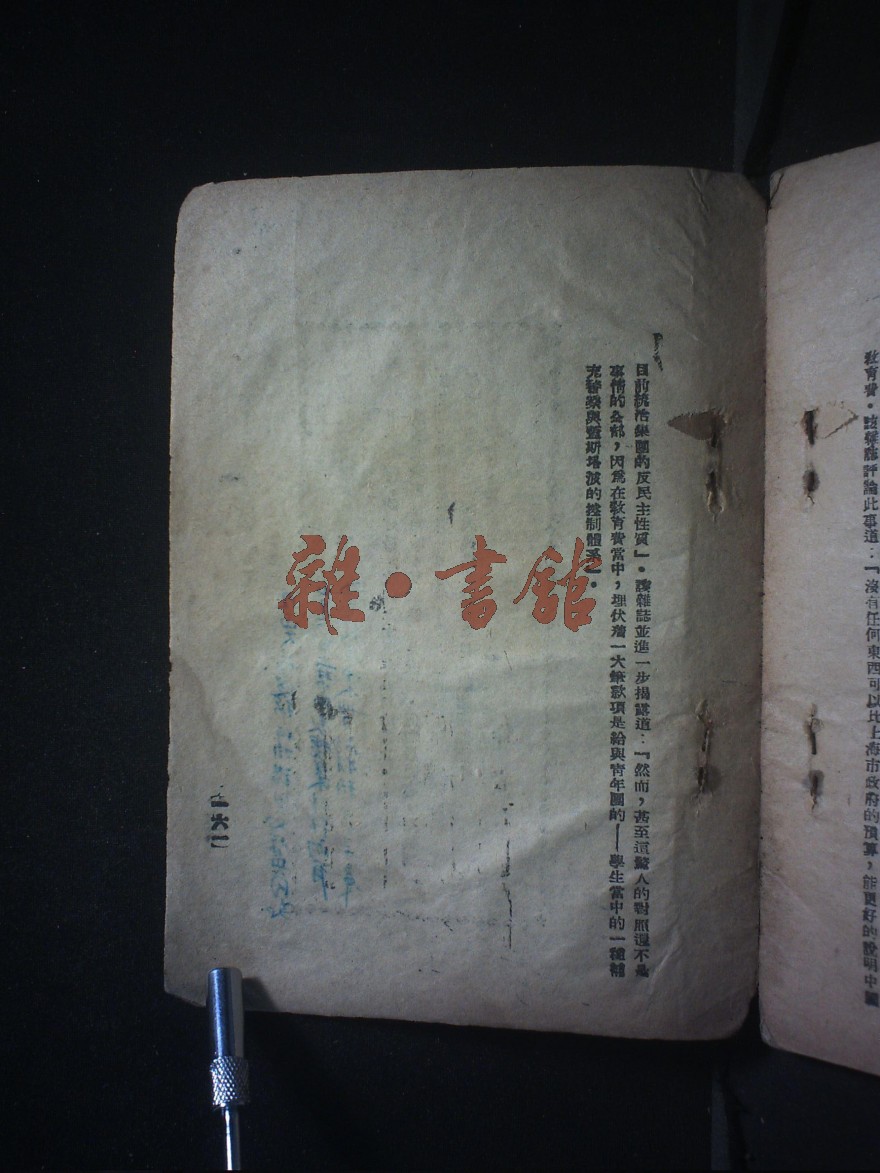 教育費。該雜誌評論此事道：『沒有任何東西可以比上海市政府的預算，能更好的說明中國
目前統治集團的反民主性質』。該雜誌並進一步揭露道：『然而，甚至這驚人的對照還不是
事情的全部，因爲在教育費當中，埋伏着一大筆款項是給與青年團的——學生當中的一種補
充警察與蓋斯塔波的控制體系』。
一六一
雜·書館